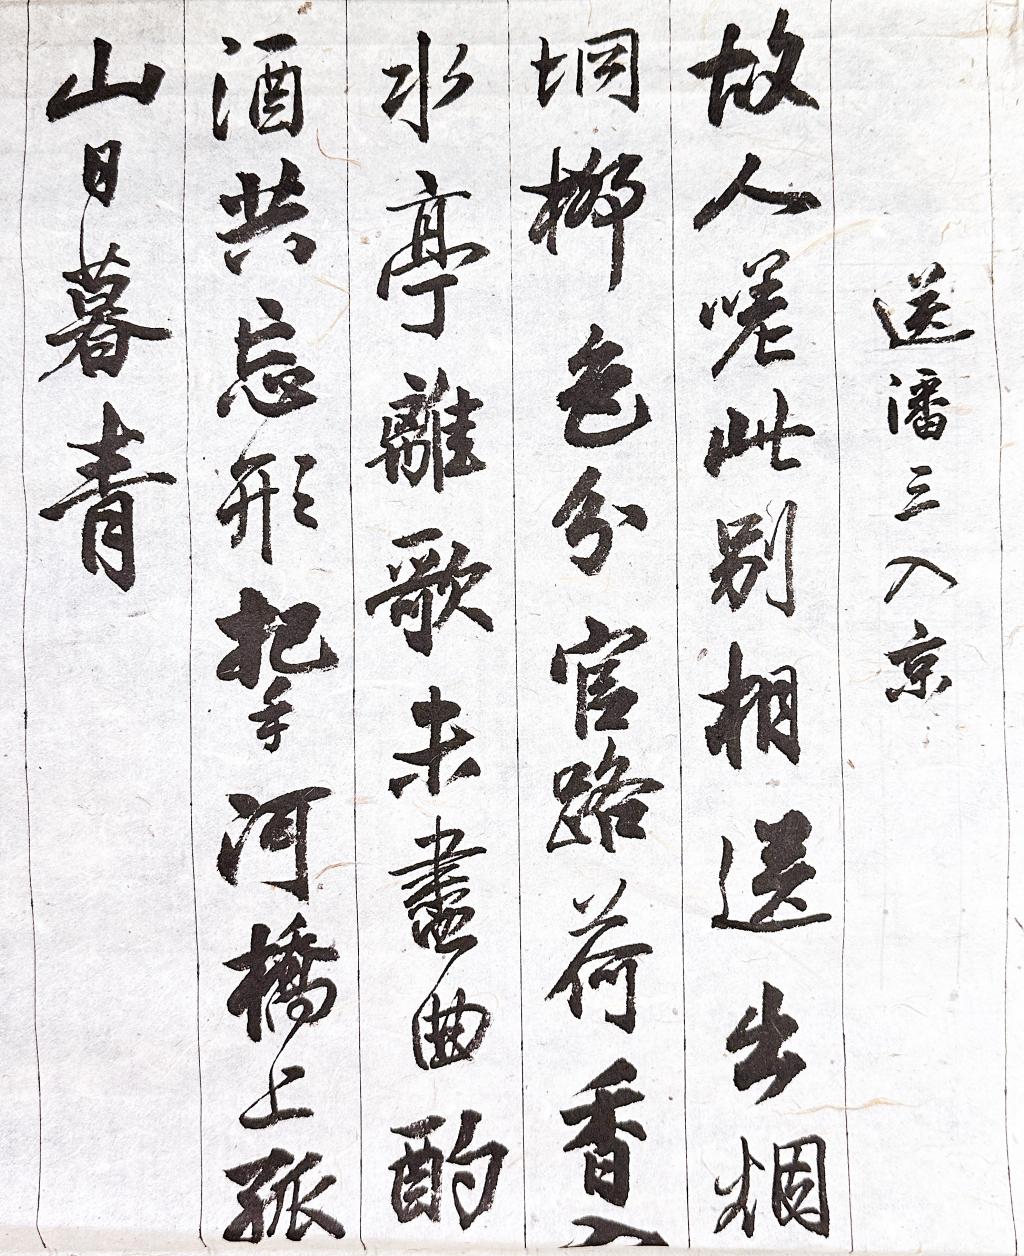 送潘三入京
故人嗟此别相送出烟
坰柳色分官路荷香入
水亭離歌未盡曲酌
酒共忘形把手河橋上孤
山日暮青